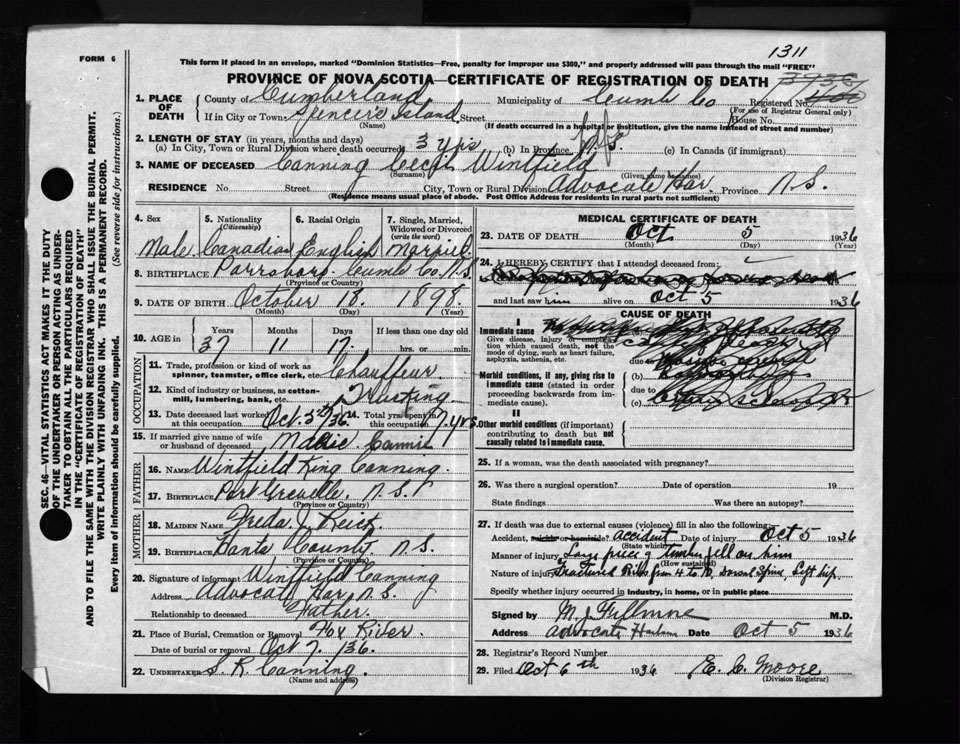 1311
FORM 6
This form if placed in an envelope, marked "Dominion Statistics—Free, penalty for improper use $300," and properly addressed will pass through the mail "FREE"
PROVINCE OF NOVA SCOTIA—CERTIFICATE OF REGISTRATION OF DEATH
SEC. 46—VITAL STATISTICS ACT MAKES IT THE DUTY
OF THE UNDERTAKER OR PERSON ACTING AS UNDER-
TAKER TO OBTAIN ALL THE PARTICULARS REQUIRED
IN THE "CERTIFICATE OF REGISTRATION OF DEATH"
AND TO FILE THE SAME WITH THE DIVISION REGISTRAR WHO SHALL ISSUE THE BURIAL PERMIT.
WRITE PLAINLY WITH UNFADING INK. THIS IS A PERMANENT RECORD.
Every item of information should be carefully supplied. (See reverse side for instructions.)
1. PLACE OF DEATH County of Cumberland Municipality of Cumb Co Registered No.
(For use of Registrar General only)
If in City or Town Spencers Island Street House No.
(Name) (If death occurred in a hospital or institution, give the name instead of street and number)
2. LENGTH OF STAY (in years, months and days)
(a) In City, Town or Rural Division where death occurred 3 yrs (b) In Province (c) In Canada (if immigrant)
3. NAME OF DECEASED Canning Cecil Wintfield
(Surname) (Given name or names)
RESIDENCE No. Street City, Town or Rural Division Advocate Har. Province N.S.
(Residence means usual place of abode. Post Office Address for residents in rural parts not sufficient)
4. Sex 5. Nationality (Citizenship) 6. Racial Origin 7. Single, Married, Widowed or Divorced (write the word)
Male Canadian English Married
8. BIRTHPLACE Parrsboro. Cumb Co. N.S
(Province or County)
9. DATE OF BIRTH October 18. 1898.
(Month) (Day) (Year)
10. AGE in Years Months Days If less than one day old
37 11 17. hrs. or min.
OCCUPATION
11. Trade, profession or kind of work as
spinner, teamster, office clerk, etc. Chauffeur
12. Kind of industry or business, as cotton-
mill, lumbering, bank, etc. Trucking
13. Date deceased last worked at this occupation Oct. 5th/36 14. Total yrs. spent in this occupation 17 yrs.
15. If married give name of wife
or husband of deceased
FATHER
16. NAME Wintfield King Canning.
17. BIRTHPLACE Port Greville. N.S.
MOTHER
18. MAIDEN NAME Freda J.
19. BIRTHPLACE Hants County N.S.
(Province or County)
20. Signature of informant Wintfield Canning
Address Advocate Har. N.S.
Relationship to deceased Father.
21. Place of Burial, Cremation or Removal Fox River.
Date of burial or removal Oct 7. /36.
22. UNDERTAKER S. R. Canning.
(Name and Address)
MEDICAL CERTIFICATE OF DEATH
23. DATE OF DEATH Oct 5 1936
(Month) (Day)
24. I HEREBY CERTIFY that I attended deceased from:
and last saw him alive on Oct 5 1936
CAUSE OF DEATH
I
Immediate cause
Give disease, injury or complica-
tion which caused death, not the
mode of dying, such as heart failure,
asphyxia, asthenia, etc.
due to
Morbid conditions, if any, giving rise to
immediate cause (stated in order
proceeding backwards from
immediate cause).
(b)
due to
(c)
II
Other morbid conditions (if important)
contributing to death but not
causally related to immediate cause.
25. If a woman, was the death associated with pregnancy?
26. Was there a surgical operation? Date of operation 19
State findings Was there an autopsy?
27. If death was due to external causes (violence) fill in also the following:
Accident, suicide or homicide? accident Date of injury Oct 5 1936
(State which)
Manner of injury Large piece of timber fell on him
(How sustained)
Nature of injury Fractured Ribs from 4 to 10, Dorsal Spine Left hip
Specify whether injury occurred in industry, in home, or in public place
Signed by M. J. Fillmore M.D.
Address Advocate Harbour Date Oct 5 1936
28. Registrar's Record Number
29. Filed Oct 6th 1936 E. C. Moore
(Division Registrar)